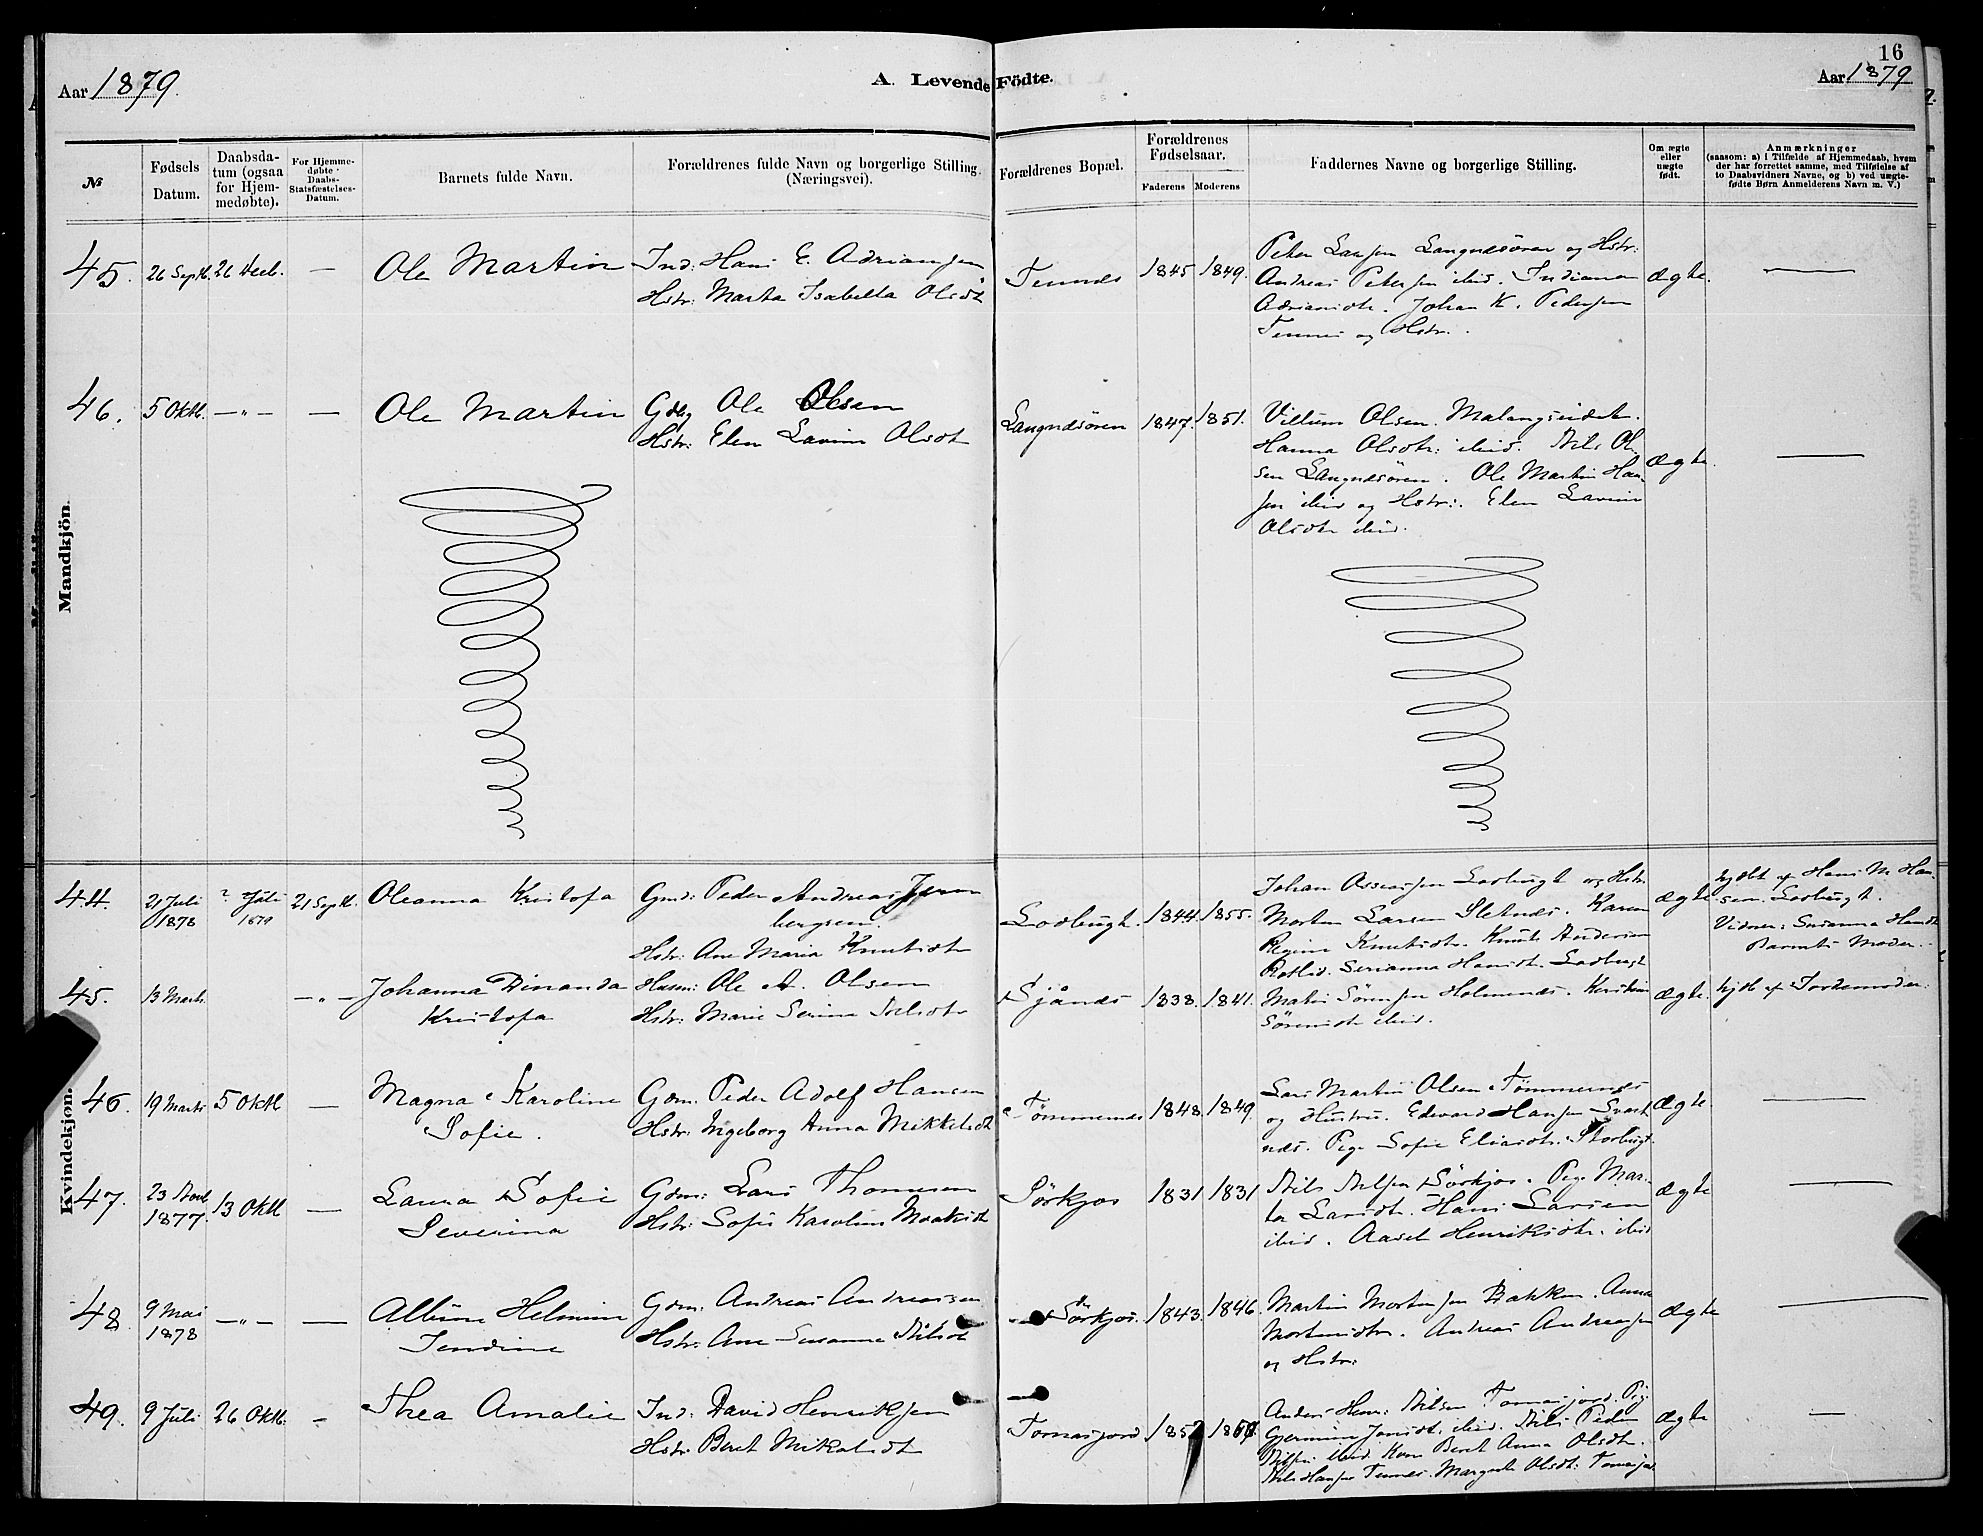 16
Aar 1879.
A. Levende Födte.
Aar 1879
№
Fødsels Datum.
Daabsdatum (ogsaa for Hjemmedøbte).
For Hjemmedøbte Daabs-Statsfæstelses-Datum.
Barnets fulde Navn.
Forældrenes fulde Navn og borgerlige Stilling. (Næringsvei).
Forældrenes Bopæl.
Forældrenes Fødselsaar.
Faderens
Moderens
Faddernes Navne og borgerlige Stilling.
Om ægte eller uægte født.
Anmærkninger
(saasom: a) i Tilfælde af Hjemmedaab, hvem
der har forrettet samme, med Tilføielse af
to Daabsvidners Navne, og b) ved uægte-
fødte Børn Anmelderens Navn m. V.)
Mandkjön.
45. 26 Septb. 26 — Ole Martin
Ind: Hans E. Adriansen
Hstr: Marta Isabella Olsdt
Tennes 1845 1849.
Peter Larsen Langnesören og Hstr:
Andreas Petersen ibid. Indiana
Adriansdtr. Johan K. Pedersen
Tennes og Hstr.
ægte.
46. 5 Oktb. —"— — Ole Martin
Gbr Ole Olsen
Hstr: Elen Lavine Olsdt
Langnesören 1847. 1851.
Villum Olsen.
Hanna Olsdtr: ibid. Nils Ol-
sen Langnesören. Ole Martin Han-
sen ibid og Hstr:. Elen Lavine
Olsdtr ibid.
ægte.
Kvindekjön.
44. 21 Juli 1878 ? Juli 1879 21 Septb. Oleanna Kristofa
Gmd: Peder Andreas
bergsen.
Hstr: Ane Maria Knutsdtr
Lodbugt. 1844. 1855.
Johan Assersen Lodbugt og Hstr.
Morten Larsen Sletnes. Karen
Regine Knutsdtr. Knut Andersen
Serianna Hansdt. Lodbugt
ægte
hjdbt af Hans M. Han-
sen. Lodbugt.
Vidner: Susanna Hansdt
Barnets Moder.
45. 13 Marts —"— Johanna Dinanda
Kristofa
Husm: Ole A. Olsen
Hstr: Marie Serine Nilsdtr
Sjånes 1838. 1841.
Matis Sörensen Holmenes.
Sörensdtr ibid.
ægte.
hjdb af Jordemoder.
46. 19 Marts 5 Oktb — Magna Karoline
Sofie.
Gdm. Peder Adolf Hansen
Hstr: Ingeborg Anna Mikkelsdt
Tömmernes 1848. 1849.
Lars Martin Olsen Tömmernes
og Hustru. Edevard Hansen Svart
nes. Pige Sofie Eliasdtr. Storbugt.
ægte.
47. 23 Novb 1877. 13 Oktb — Laura Sofie
Severina
Gdm: Lars Thomesen
Hstr: Sofie Karoline
Sörkjos 1831 1831
Nils Nilsen Sörkjos. Pige Mar-
ta Larsdtr. Hans Larsen
ibid. Aaselt Henriksdtr. ibid
ægte
48. 9 Mai 1878 —"— — Albine Helmine
Jendine
Gdm. Andreas Andreassen
Hstr: Ane Susanna Nilsdt
Sörkjos. 1843. 1846.
Martin Mortensen Bakken. Anna
Mortensdtr. Andreas Andreassen
og Hstr:
ægte
49. 9 Juli 26 Oktb. — Thea Amalie
Ind: David Henriksen
Hstr: Beret Mikalsdt
Tomasjord
Anders Henr: Nilsen Tomasjord. Pige
Jensdt. ibid. Nils Peder
Nilsen ibid. Kone Beret Anna Olsdtr.
Nils Hansen Tennes. Margrete Olsdt: Tomasjord
ægte